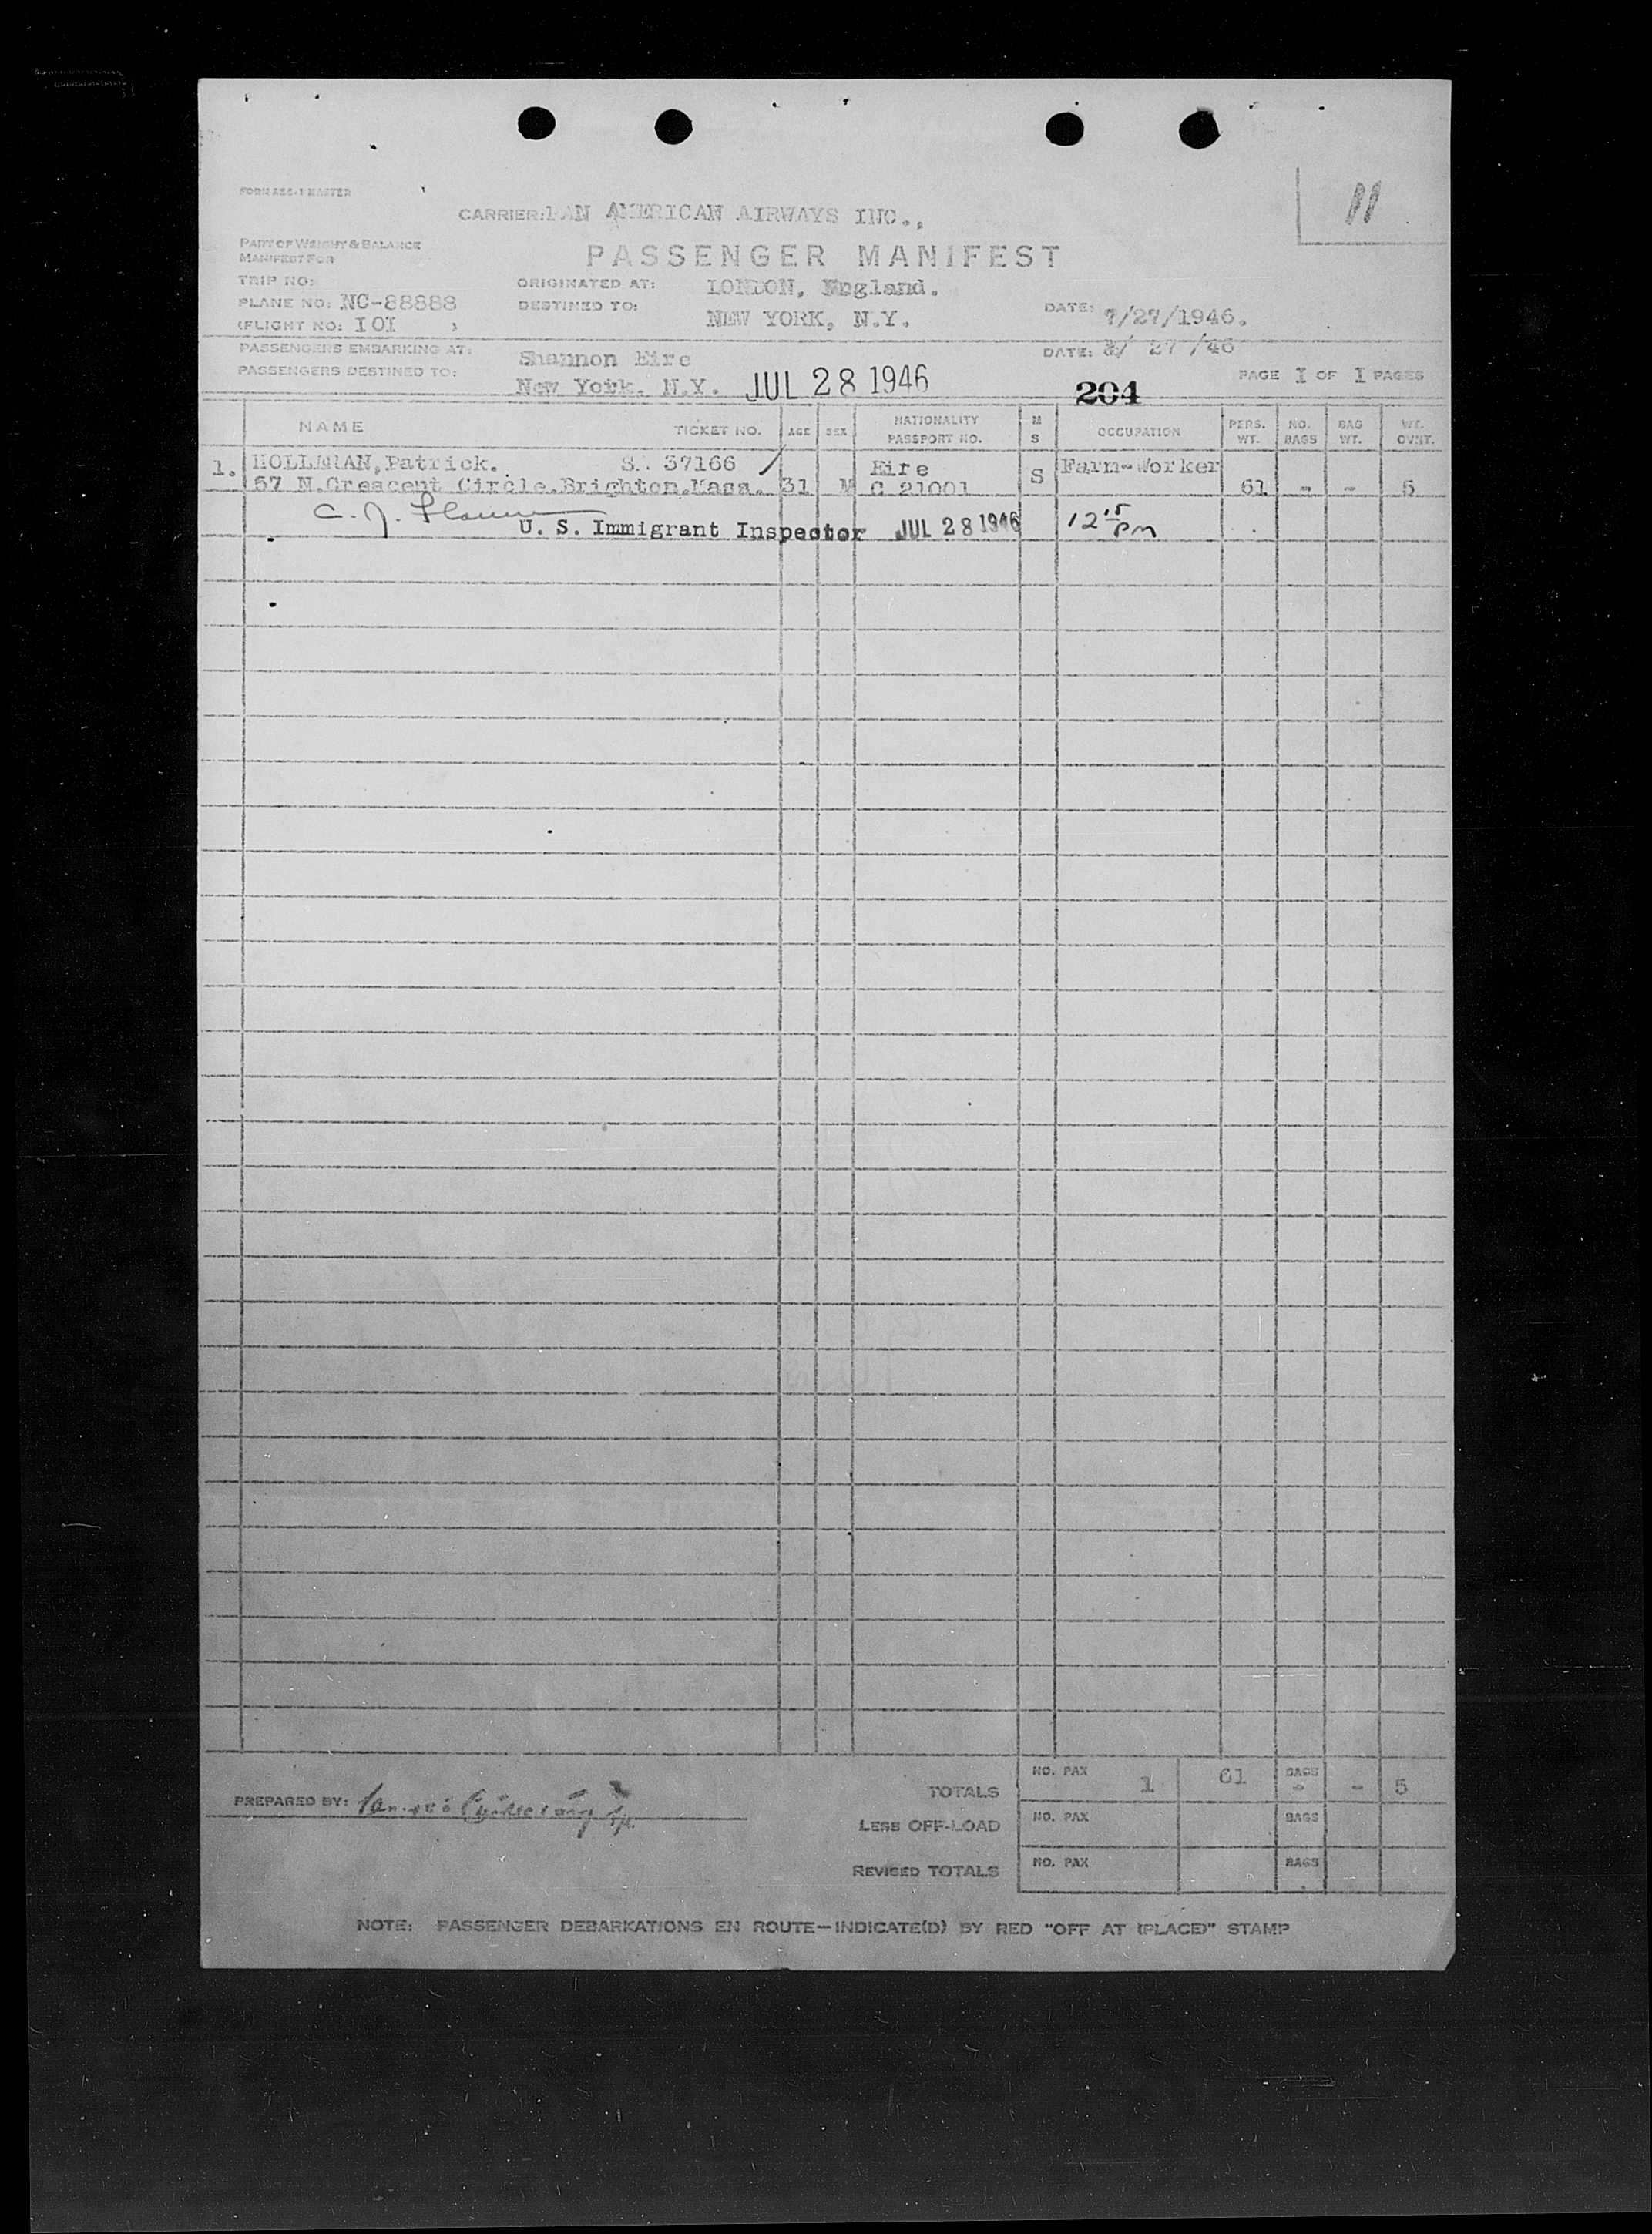 FORM ABC-1 MASTER
11
CARRIER: PAN AMERICAN AIRWAYS INC.,
PART OF WEIGHT & BALANCE
MANIFEST FOR
PASSENGER MANIFEST
TRIP NO:
ORIGINATED AT: LONDON, England.
PLANE NO: NC-88888
DESTINED TO: NEW YORK, N.Y.
DATE: 7/27/1946.
(FLIGHT NO: IOI )
PASSENGERS EMBARKING AT: Shannon Eire
DATE: 27 /46
PASSENGERS DESTINED TO: New York. N.Y. JUL 28 1946
204
PAGE I OF I PAGES
NAME TICKET NO. AGE SEX NATIONALITY PASSPORT NO. M S OCCUPATION PERS. WT. NO. BAGS BAG WT. WT. OVNT.
1. Patrick. 37166 Eire S Farm-Worker
57 N.Crescent Circle.Brighton.Mass. 31 M C 21001 61 - - 5
C. J.
U. S. Immigrant Inspector JUL 28 1946 12 15 PM
TOTALS NO. PAX 1 61 BAGS - - 5
PREPARED BY:
LESS OFF-LOAD NO. PAX BAGS
REVISED TOTALS NO. PAX BAGS
NOTE: PASSENGER DEBARKATIONS EN ROUTE—INDICATE(D) BY RED "OFF AT (PLACE)" STAMP